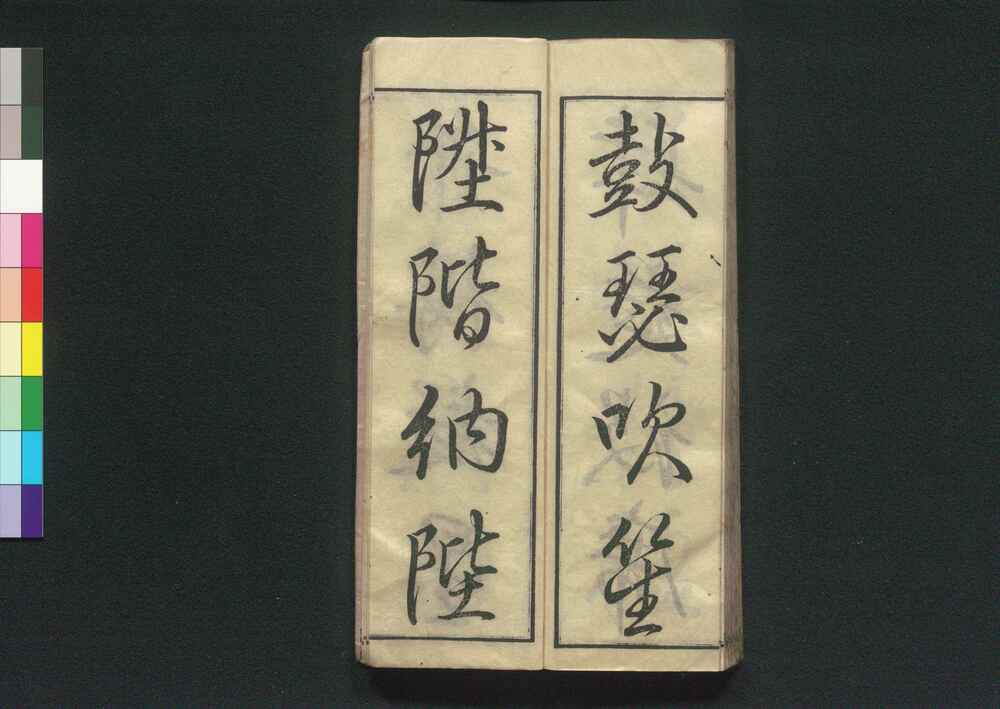 鼓瑟吹笙
陞階納陛